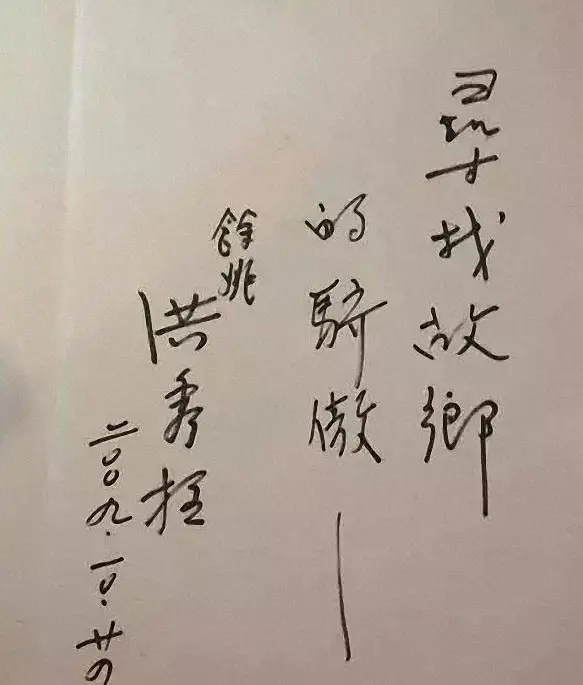 尋找故鄉
的驕傲—
餘姚
洪秀柱
二〇〇九.一〇.廿